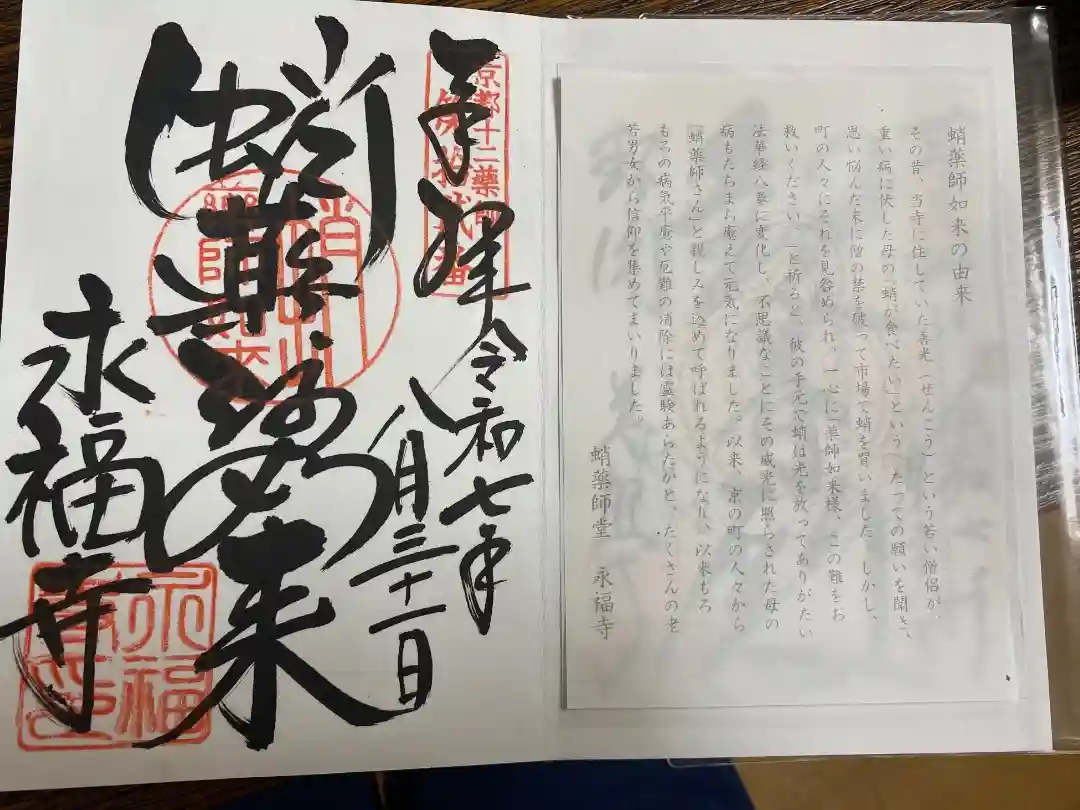 蛸薬師如来の由来
その昔、当寺に住していた善光(ぜんこう)という若い僧侶が、
重い病に伏した母の「蛸が食べたい」という、たっての願いを聞き、
思い悩んだ末に僧の禁を破って市場で蛸を買いました しかし、
町の人々にそれを見咎められ、一心に「薬師如来様、この難をお
救いください。」と祈ると、彼の手元で蛸は光を放ってありがたい
法華経八巻に変化し、不思議なことにその威光に照らされた母の
病もたちまち癒えて元気になりました。以来、京の町の人々から
「蛸薬師さん」と親しみを込めて呼ばれるようになり、以来もろ
もろの病気平癒や厄難の消除には霊験あらたかと、たくさんの老
若男女から信仰を集めてまいりました。
蛸薬師堂 永福寺
京都十二薬師
第拾弐番
奉拝 令和七年
八月三十一日
蛸薬師如来
永福寺